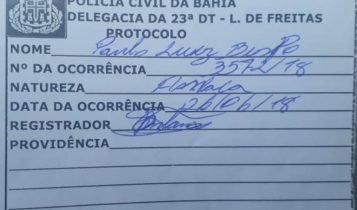 POLÍCIA CIVIL DA BAHIA
DELEGACIA DA 23ª DT - L. DE FREITAS
PROTOCOLO
NOME Paulo Luiz
Nº DA OCORRÊNCIA 3572/18
NATUREZA Ameaça
DATA DA OCORRÊNCIA 26/06/18
REGISTRADOR
PROVIDÊNCIA